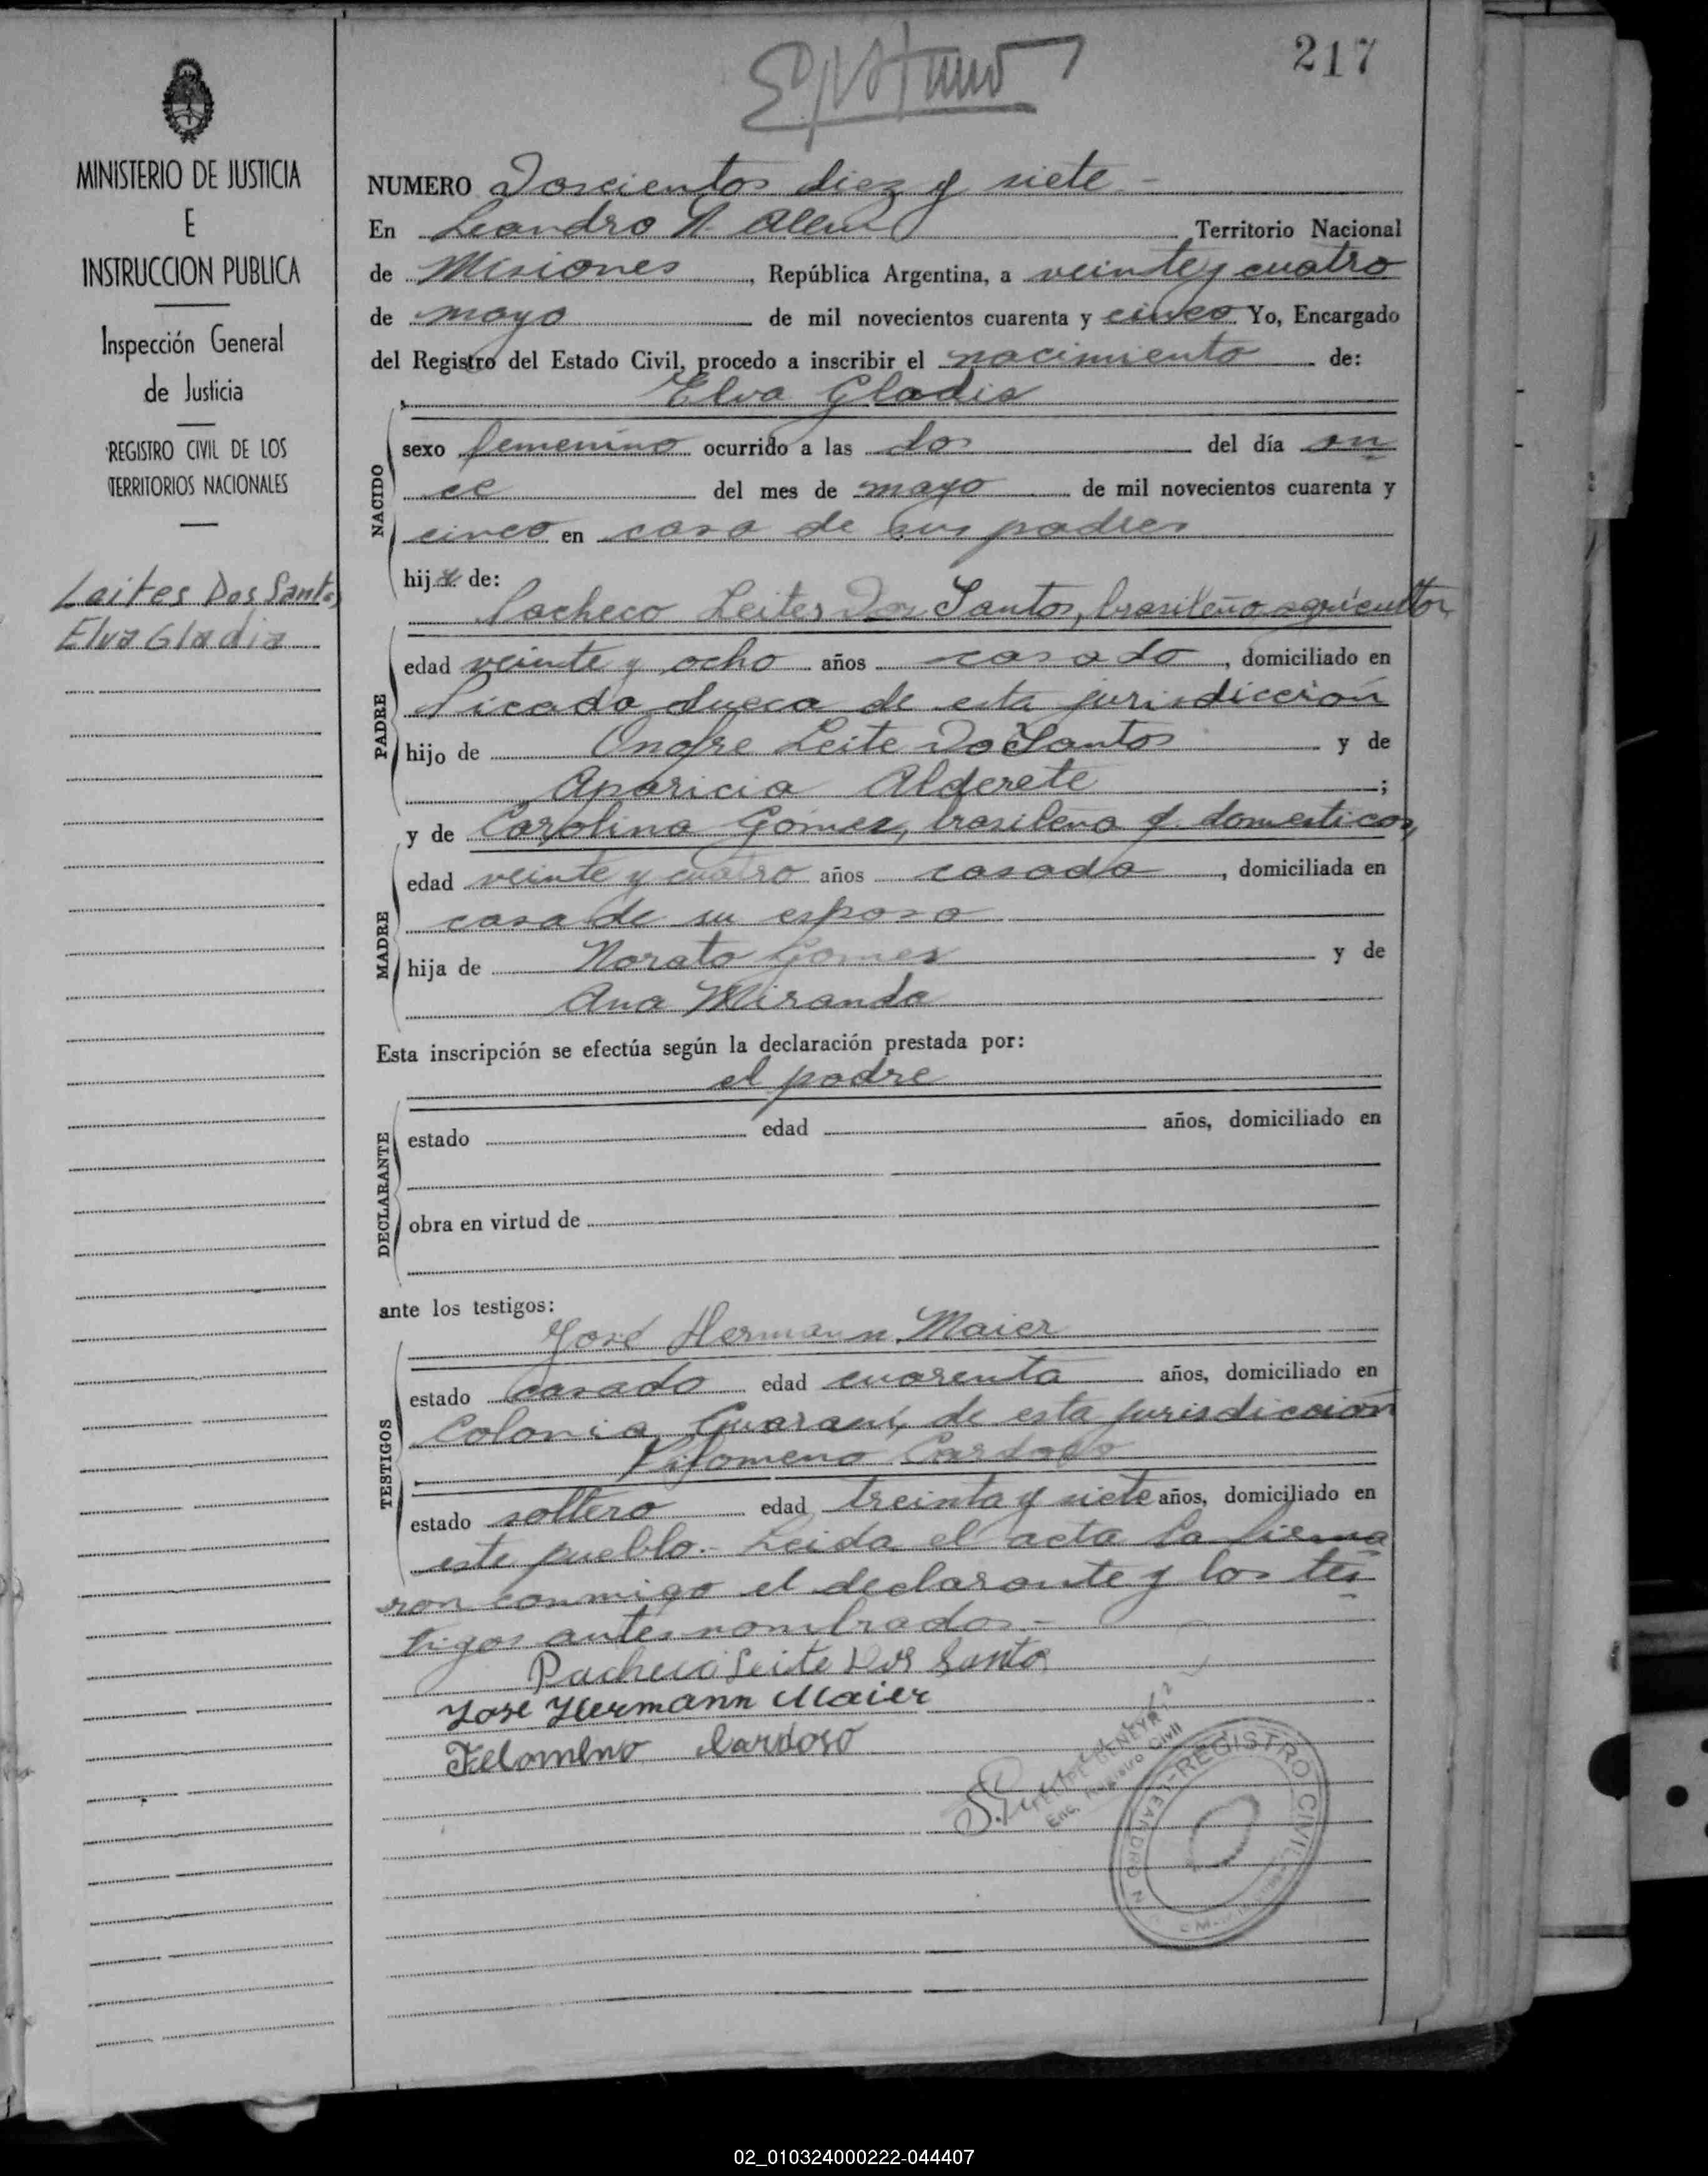 217
MINISTERIO DE JUSTICIA
E
INSTRUCCION PUBLICA
Inspección General
de Justicia
REGISTRO CIVIL DE LOS
TERRITORIOS NACIONALES
Laites Dos Santos
Elva Gladis
NUMERO Doscientos diez y siete -
En Leandro N. Alem Territorio Nacional
de Misiones, República Argentina, a veinte y cuatro
de mayo de mil novecientos cuarenta y cinco Yo, Encargado
del Registro del Estado Civil, procedo a inscribir el nacimiento de:
Elva Gladis
NACIDO
sexo femenino ocurrido a las dos del día on
ce del mes de mayo de mil novecientos cuarenta y
cinco en casa de sus padres
hija de:
Pacheco Leites Dos Santos, brasileño agricultor
PADRE
edad veinte y ocho años casado, domiciliado en
Picada de esta jurisdicción
hijo de Onofre Leite Do Santos y de
Aparicia Alderete ;
y de Carolina Gómez, brasileña q. domesticos,
MADRE
edad veinte y cuatro años casada, domiciliada en
casa de su esposo
hija de Norato Gomez y de
Ana Miranda
Esta inscripción se efectúa según la declaración prestada por:
el padre
DECLARANTE
estado edad años, domiciliado en
obra en virtud de
ante los testigos:
José Hermann Maier
TESTIGOS
estado casado edad cuarenta años, domiciliado en
Colonia Guaraní, de esta jurisdicción
Filomeno Cardoso
estado soltero edad treinta y siete años, domiciliado en
este pueblo.- Leida el acta la firma
ron conmigo el declarante y los tes
tigos antes nombrados.-
Pacheco Leite Dos Santos
Jose Hermann Maier
Felomeno Cardoso
Enc. Registro Civil
REGISTRO CIVIL
LEANDRO N.
02_010324000222-044407